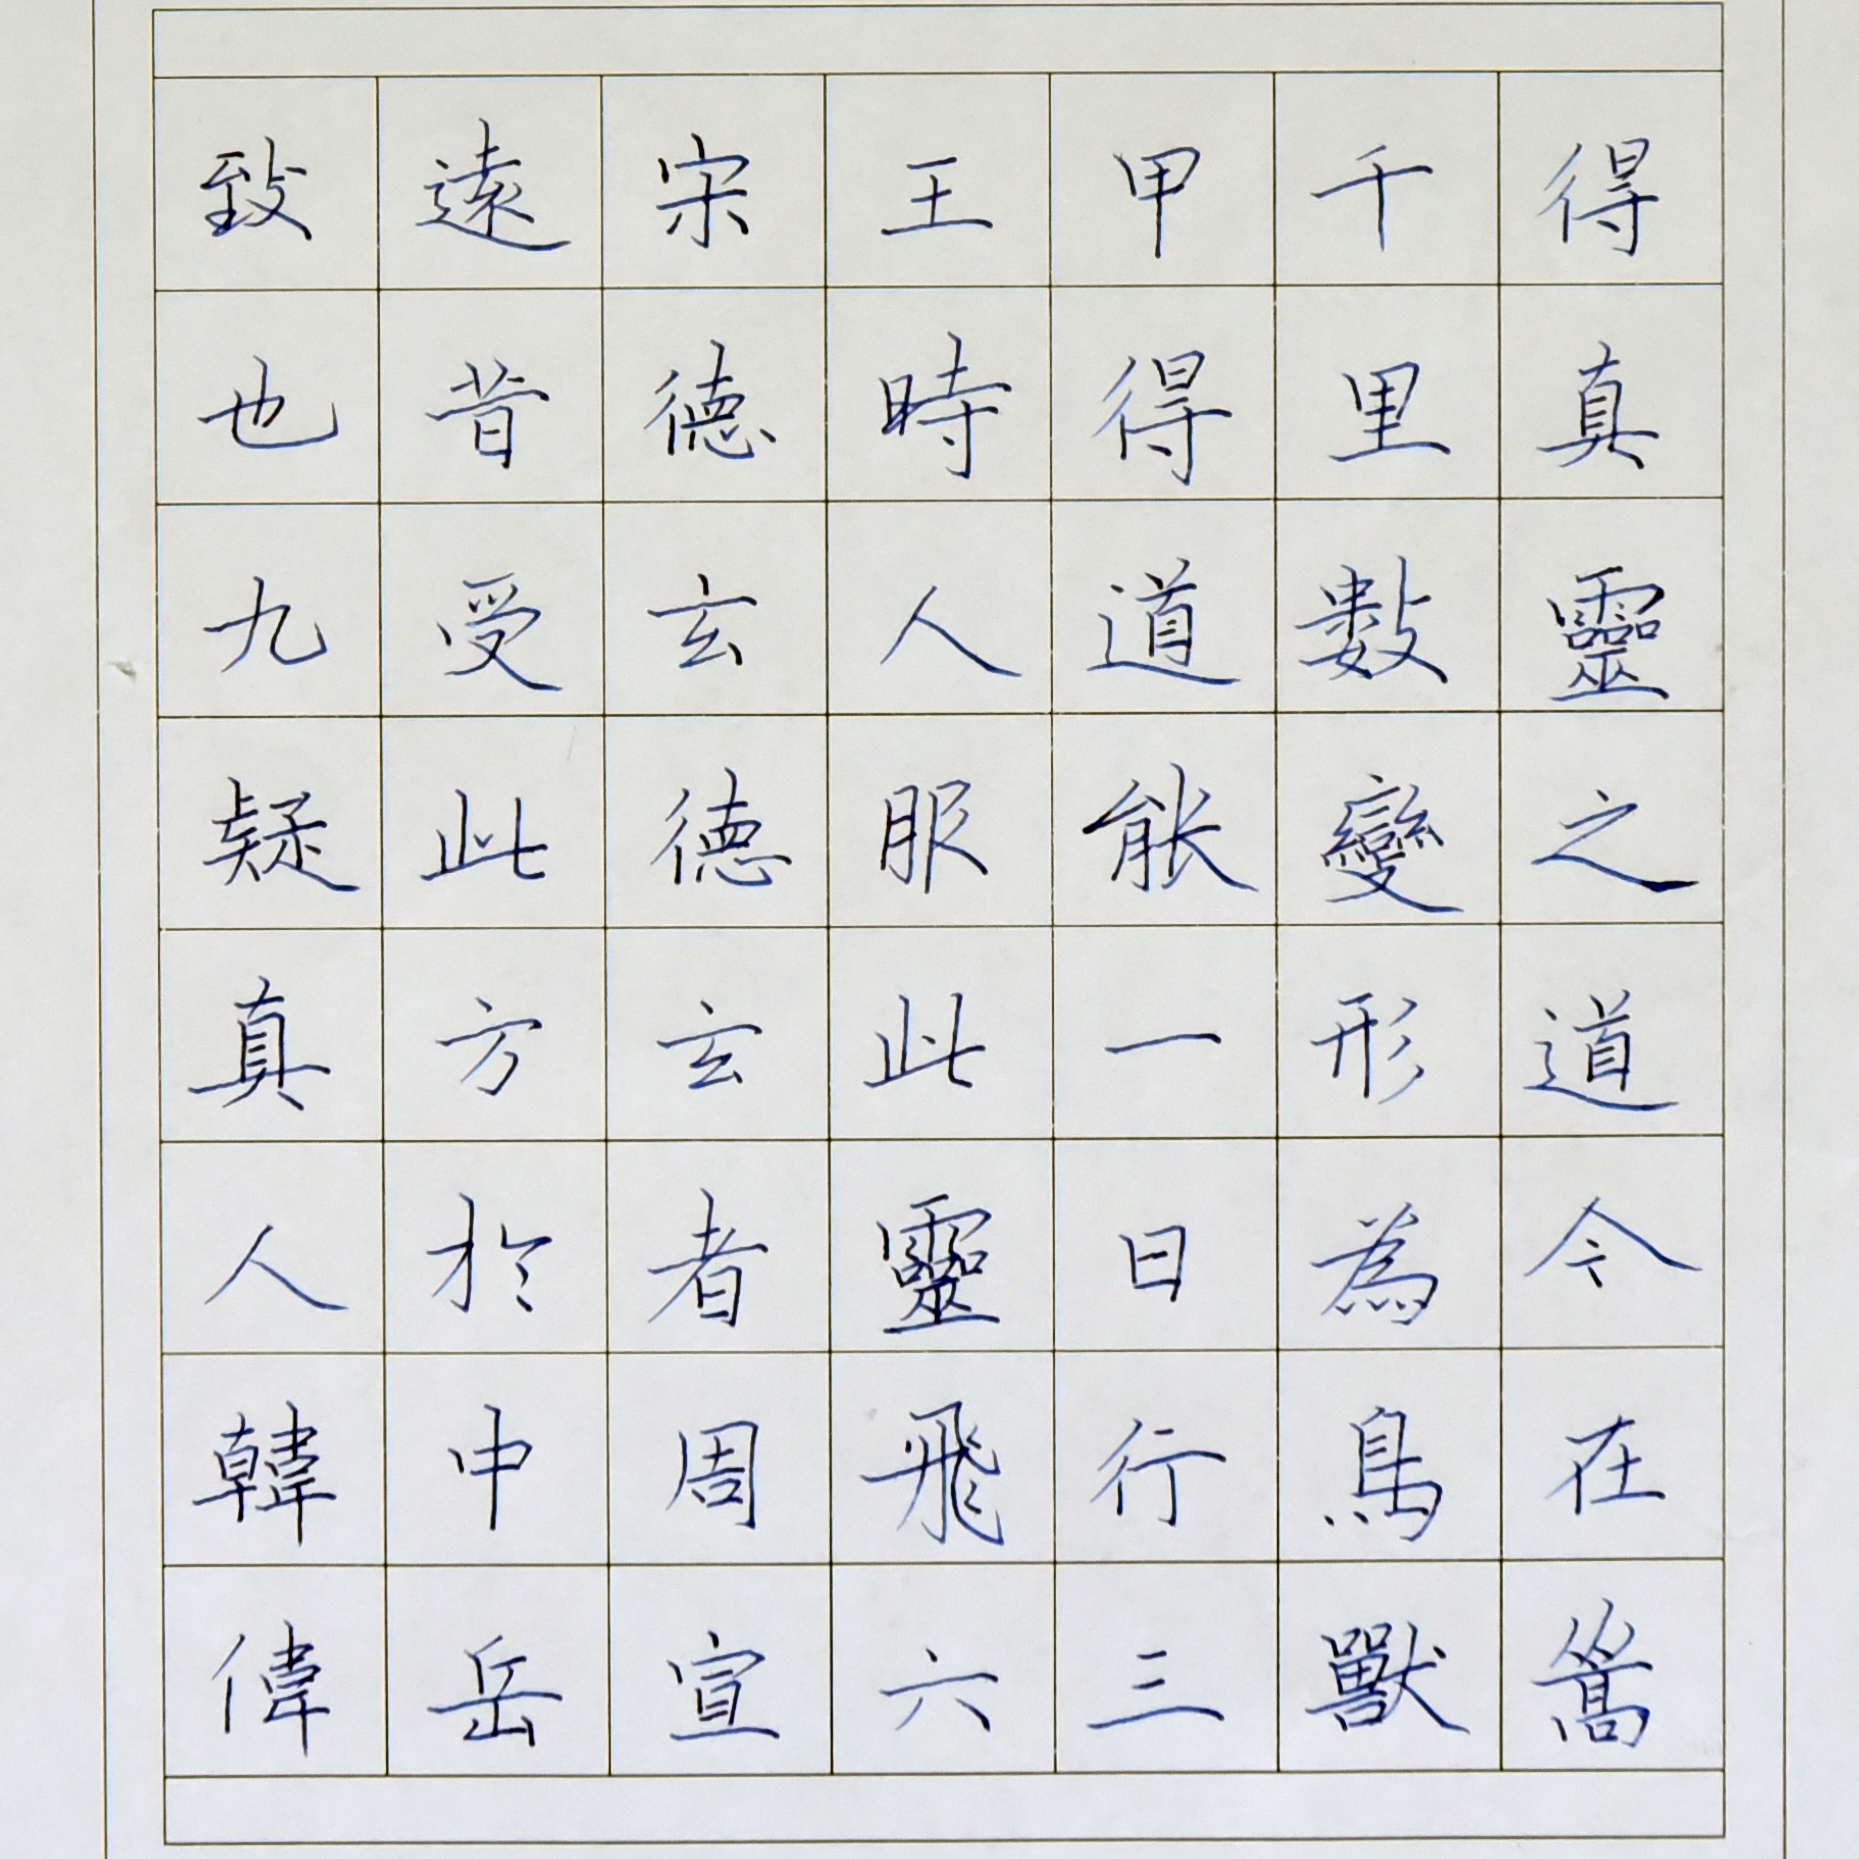 致也九疑真人韓偉
遠昔受此方於中岳
宋德玄德玄者周宣
王時人服此靈飛六
甲得道能一日行三
千里數變形為鳥獸
得真靈之道今在嵩